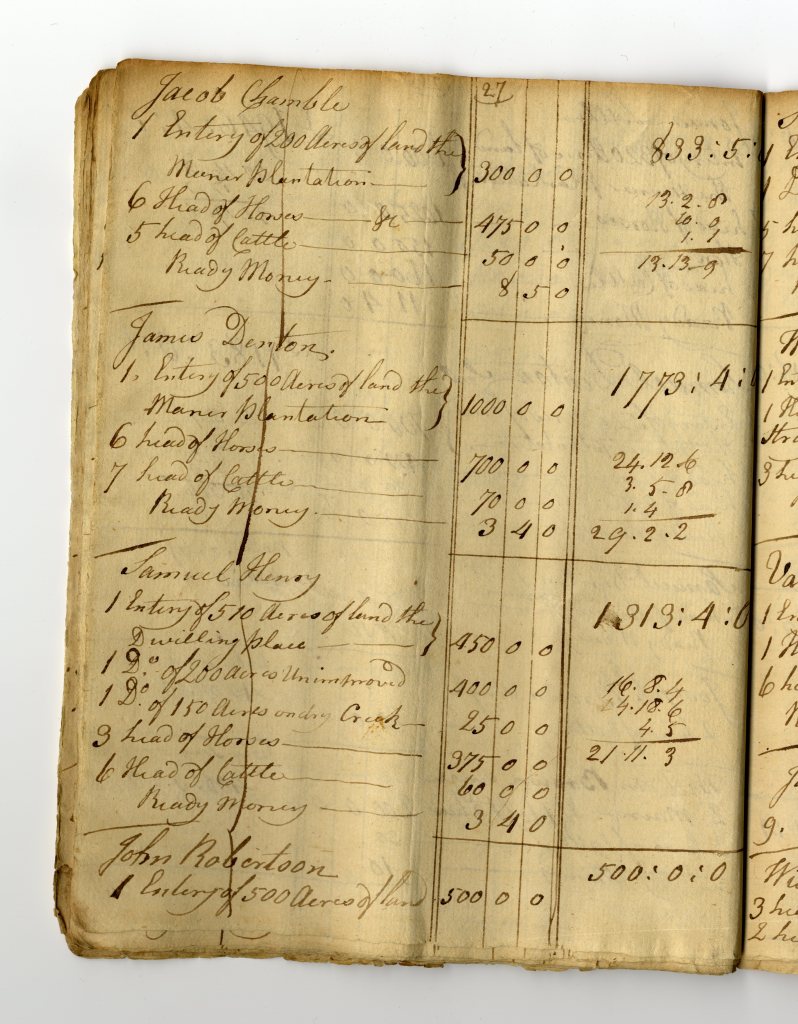 27
Jacob Chamble
1 Entery of 200 Acres of land the } 833:5:
Maner Plantation 300 0 0
6 Head of Horses &c 475 0 0 13.2.8
10.0
5 head of Cattle 50 0 0 1.1
Ready Money 8 5 0 13.13.9
James Denton.
1. Entery of 500 Acres of land the } 1773:4:0
Maner Plantation 1000 0 0
6 head of Horses 700 0 0 24.12.6
7 head of Cattle 70 0 0 3.5.8
1.4
Ready Money. 3 4 0 29.2.2
Samuel Henry
1 Entery of 510 Acres of land the } 1313:4:0
Dwilling place 450 0 0
1 Do. of 200 Acres Unimproved 400 0 0 16.8.4
1 Do. of 150 Acres on dry Creak 25 0 0 4.18.6
4.5
3 head of Horses 375 0 0 21.11.3
6 Head of Cattle 60 0 0
Ready Money 3 4 0
John Robertson 500:0:0
1 Entery of 500 Acres of land 500 0 0